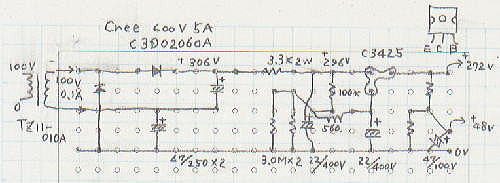 Cree 600V 5A
C3D02060A
E C B
100V
100V
0.1A
0
TZ11-
010A
+306V
3.3K2W
+296V
C3425
+292V
100K
560
+48V
0V
47/250×2
3.0M×2
22/400V
22/400V
47/100V